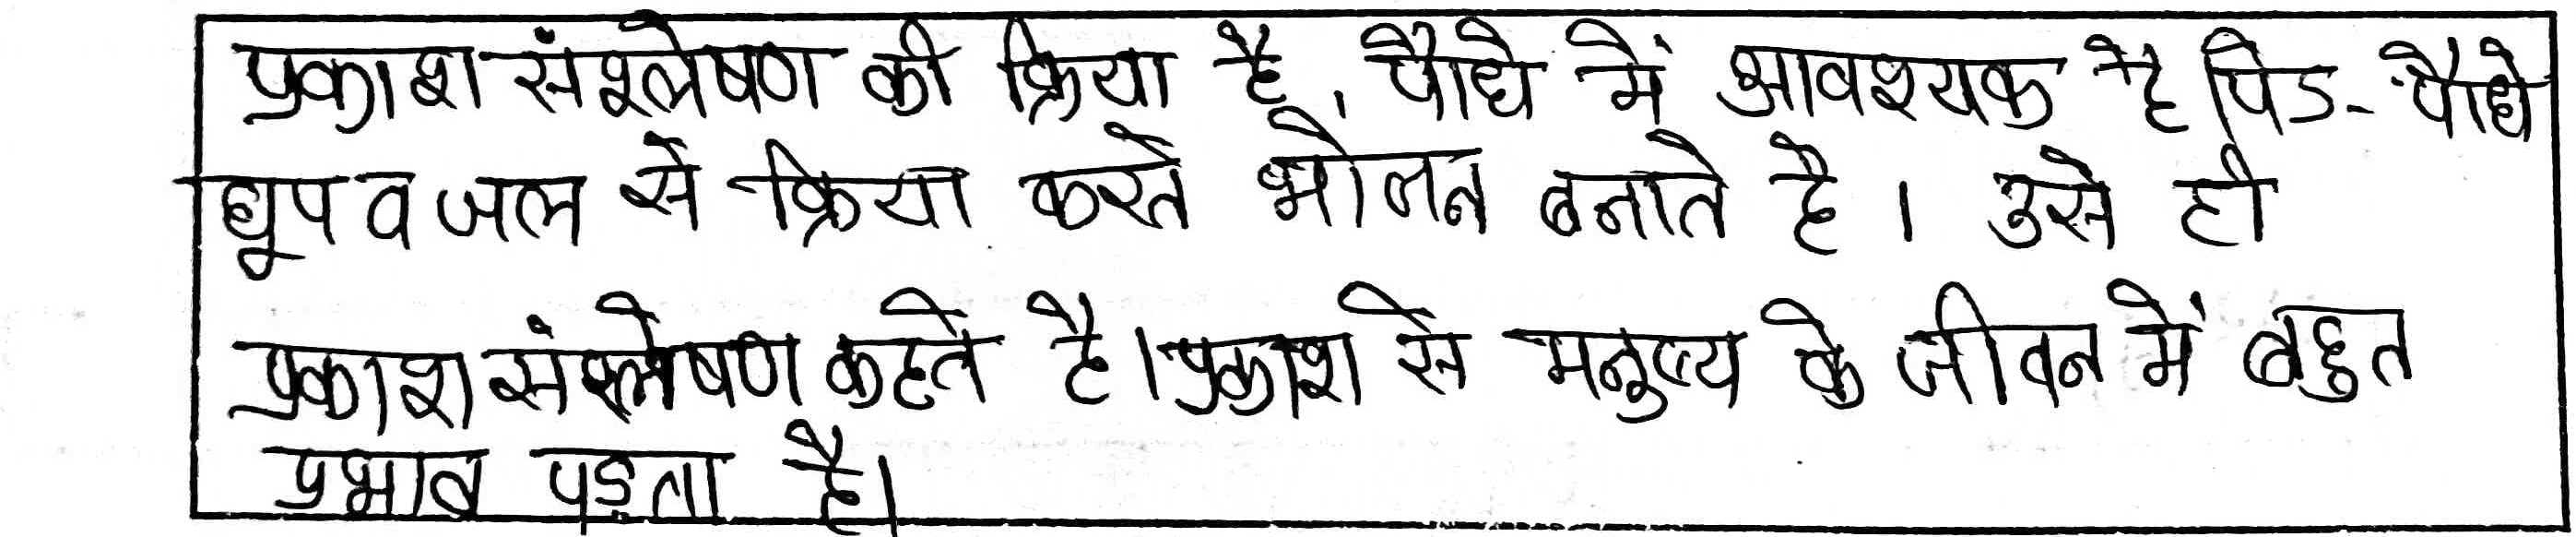 प्रकाश संश्लेषण की क्रिया है, पौधे में आवश्यक है पेड-पौधे
धूप व जल से क्रिया करते भोजन बनाते है। उसे ही
प्रकाश संश्लेषण कहते है। प्रकाश से मनुष्य के जीवन में बहुत
प्रभाव पड़ता है।